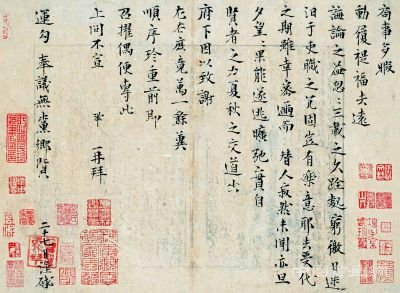 局事多暇
動履禔福去遠
誨論之益忽忽三載之久跧處窮徼日迷
汩于吏職之冗固豈有樂意耶去受代
之期雖幸密邇而替人寂然未聞亦旦
夕望望果能遂逃曠弛實自
賢者之力夏秋之交道出
府下因以致謝
左右庶竟萬一餘冀
順序珍重前即
召擢偶便專此
上問不宣 鞏再拜
運勾奉議無黨鄉賢
二十七日謹啓